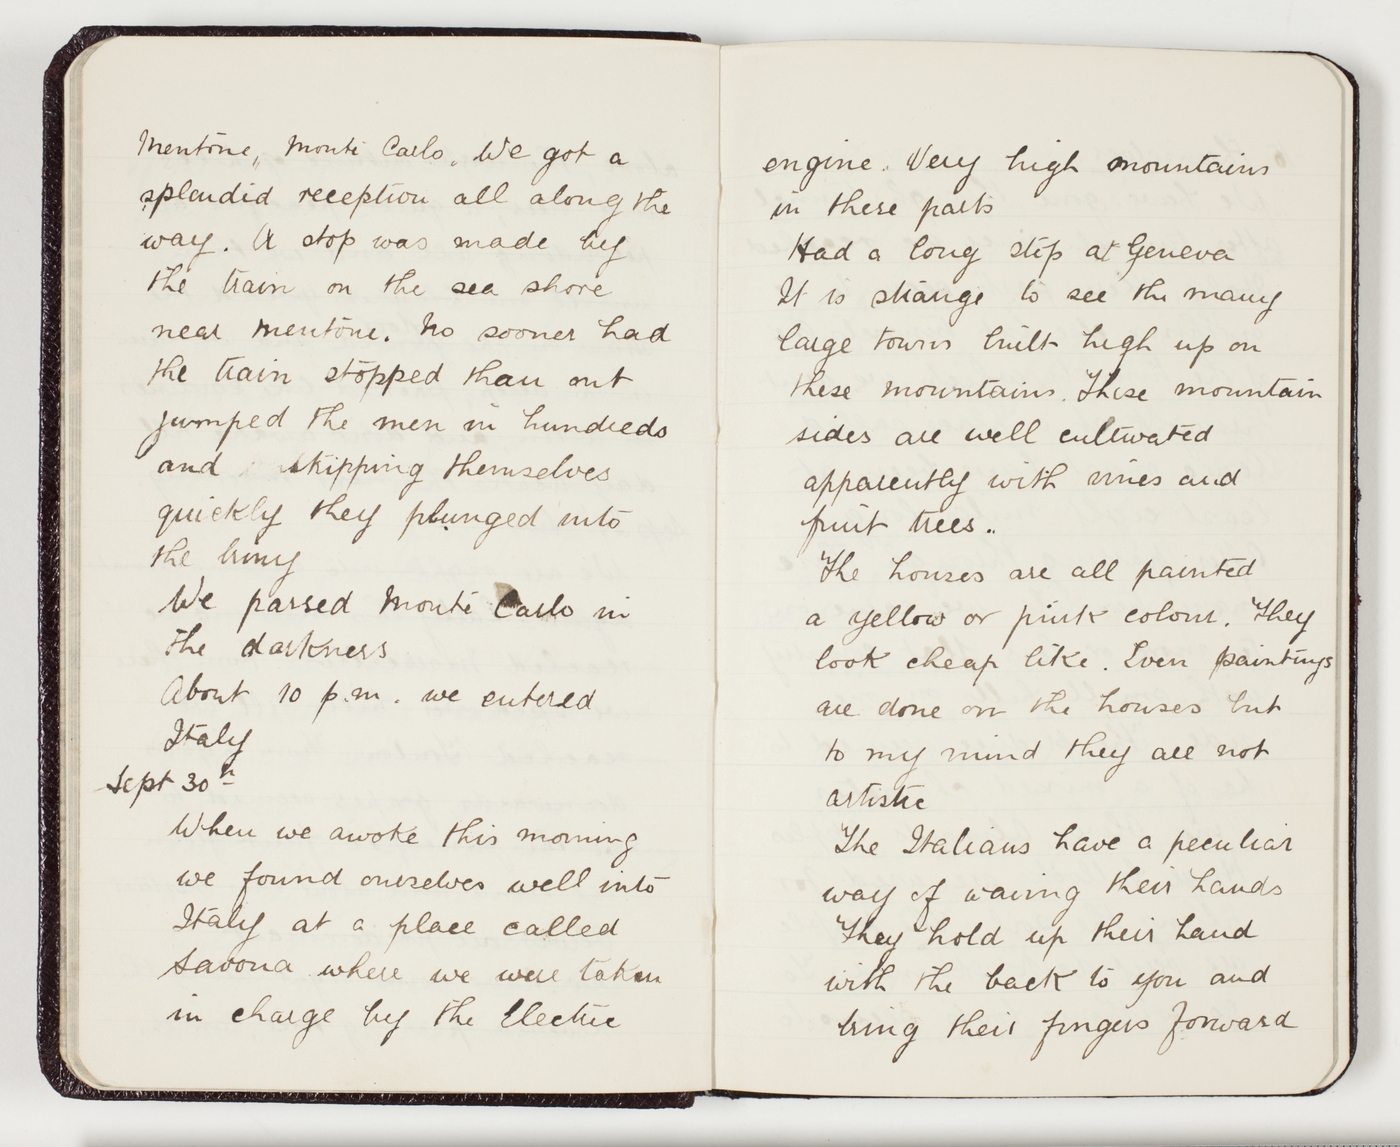 Mentone, Monte Carlo. We got a
splendid reception all along the
way. A stop was made by
the train on the sea shore
near Mentone. No sooner had
the train stopped than out
jumped the men in hundreds
and skipping themselves
quickly they plunged into
the briny
We passed Monte Carlo in
the darkness
About 10 p.m. we entered
Italy
Sept 30th
When we awoke this morning
we found ourselves well into
Italy at a place called
Savona where we were taken
in charge by the Electric
engine. Very high mountains
in these parts
Had a long stop at Geneva
It is strange to see the many
large towns built high up on
these mountains. These mountain
sides are well cultivated
apparently with vines and
fruit trees..
The houses are all painted
a yellow or pink colour. They
look cheap like. Even paintings
are done on the houses but
to my mind they are not
artistic
The Italians have a peculiar
way of waving their hands
They hold up their hand
with the back to you and
bring their fingers forward